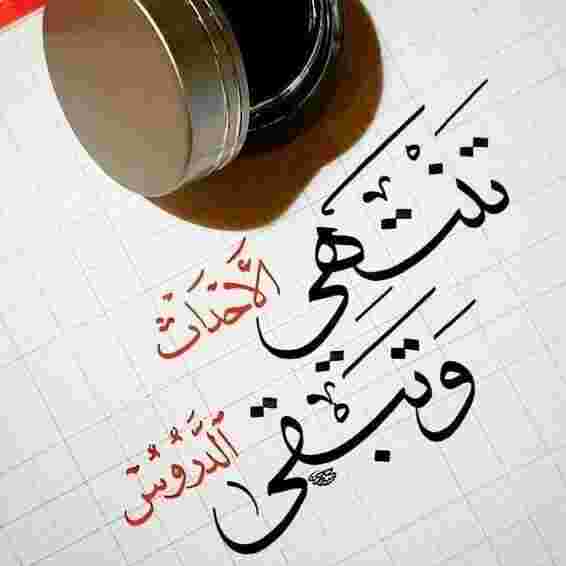 تَنْتَهِي الأَحْدَاثُ
وَتَبْقَى الدُّرُوسُ